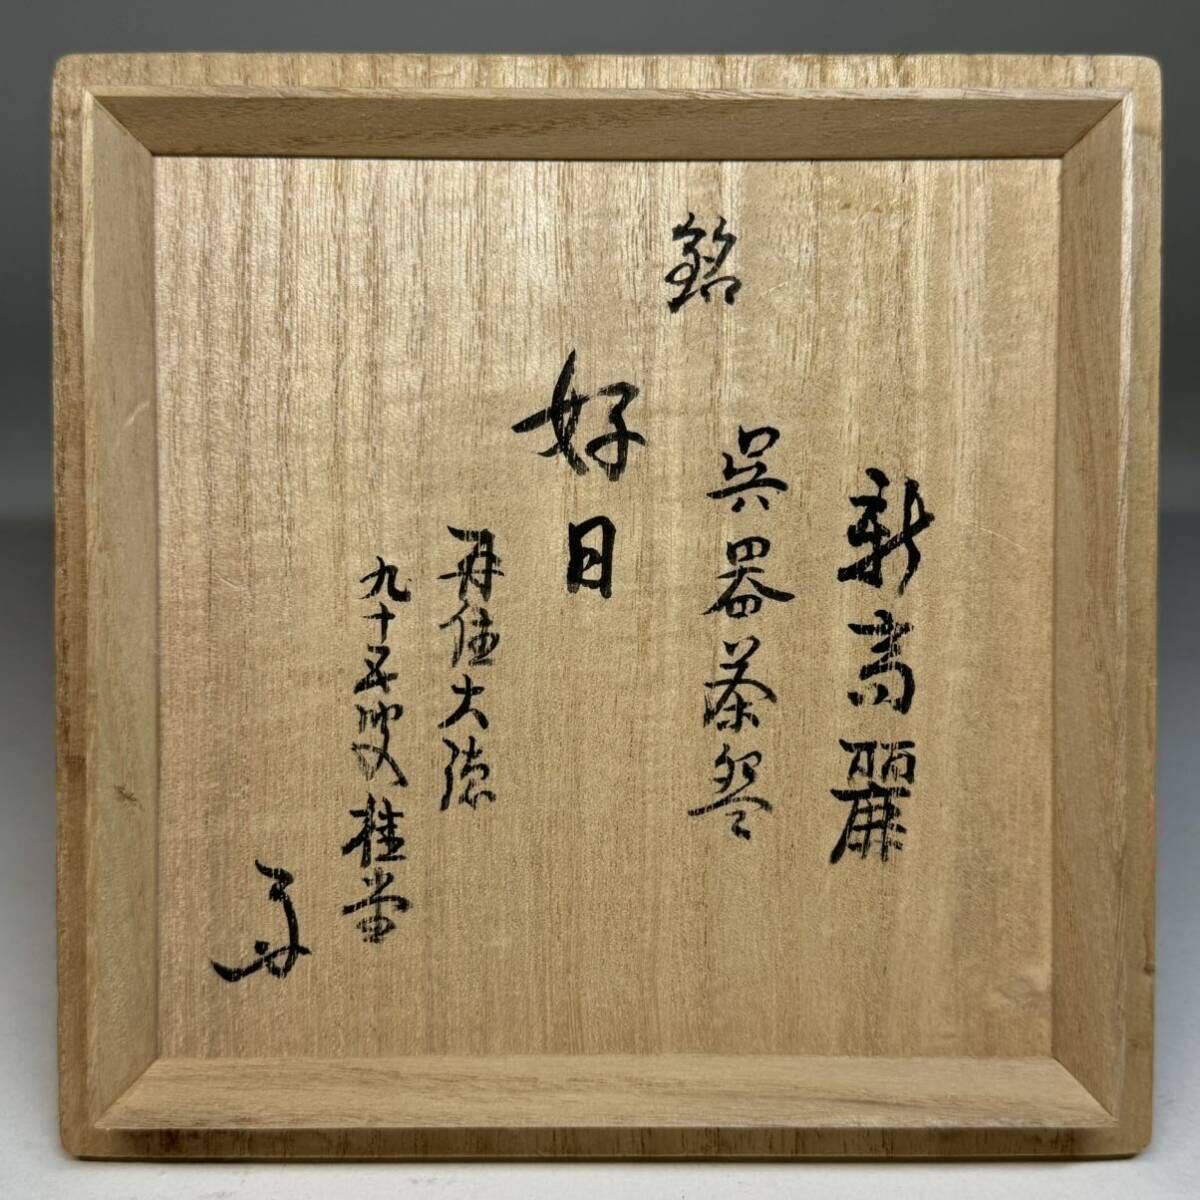 新高麗
呉器茶埦
銘
好日
再住大徳
九十五叟桂堂